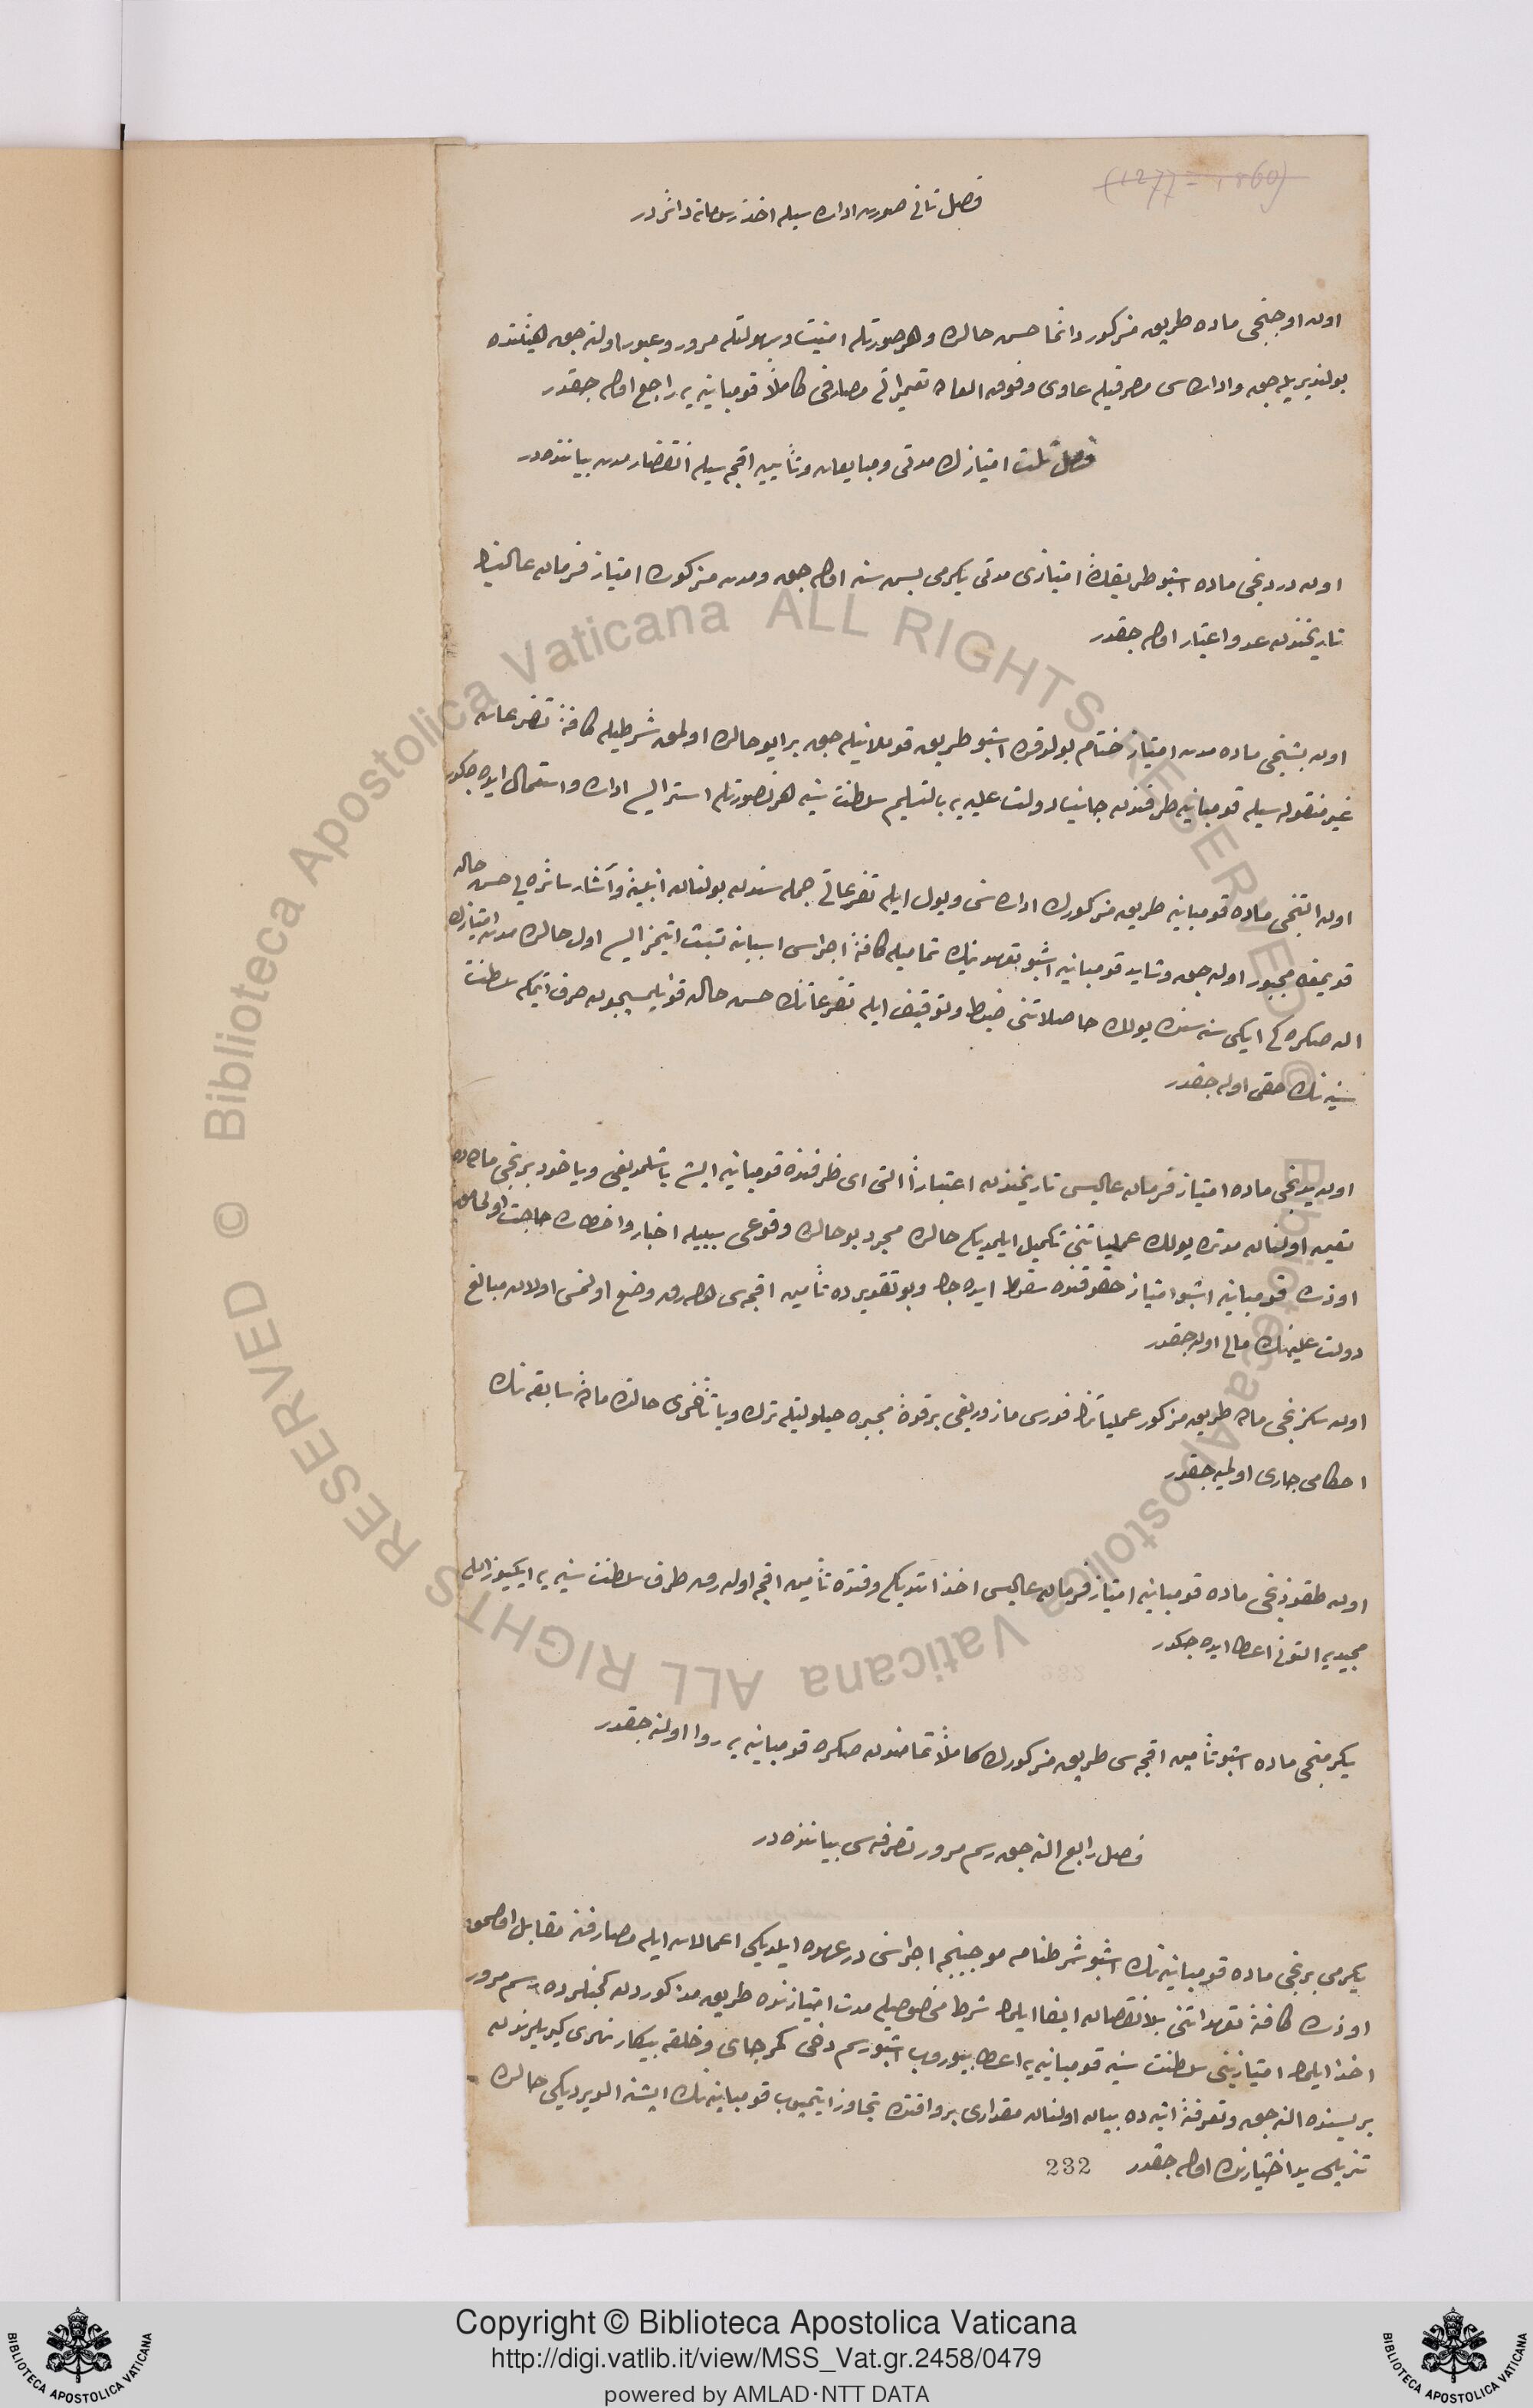 (1277 = 1860)
فصل ثانی صورت اداره سیله اخذ رسمنه دائردر
اون اوچنجی ماده طریق مذکور دائما حسن حالده و هر صورتله امنیت و سهولتله مرور و عبور اولنه جق هیئتده
بولندیریله جق و اداره سی مصرفیله عادی و فوق العاده تعمیراتی مصارفی کاملاً قومپانیه یه راجع اوله جقدر
فصل ثالث امتیازک مدتی و مبایعه و تأمین اقچه سیله انقضای مدت بیاننده در
اون دردنجی ماده اشبو طریقک امتیازی مدتی یکرمی بش سنه اوله جق و مدت مذکوره امتیاز فرمان عالینک
تاریخندن عد و اعتبار اوله جقدر
اون بشنجی ماده مدت امتیاز ختام بولدقده اشبو طریق قوللانیله جق بر ایو حالده اولمق شرطیله کافۀ تفرعات
غیر منقوله سیله قومپانیه طرفندن جانب دولت علیه یه بالتسلیم سلطنت سنیه هر نصورتله استرایسه اداره و استعمال ایده جکدر
اون التنجی ماده قومپانیه طریق مذکورک اداره سنی و یول ایله تفرعاتی جمله سندن بولنان ابنیه و آثار سائره یی حسن حالده
قویمغه مجبور اوله جق و شاید قومپانیه اشبو تعهدینک تمامیله کافۀ اجراسی اسبابنه تشبث ایتمز ایسه اول حالده مدت امتیازک
الک صکره کی ایکی سنه سنده یولک حاصلاتنی ضبط و توقیف ایله تفرعاتنک حسن حاله قوللمسیچون صرف ایتمک سلطنت
سنیه نک حقی اوله جقدر
اون یدنجی ماده امتیاز فرمان عالیسی تاریخندن اعتباراً التی ای ظرفنده قومپانیه ایشه باشلمدیغی و یاخود برنجی ماده ده
تعیین اولنان مدتده یولک عملیاتنی تکمیل ایلمدیکی حالده مجرد بو حالک وقوعی سببیله اخبار و اخطاره حاجت اولمامق
اوزره قومپانیه اشبو امتیاز حقوقندن سقوط ایده جک و بو تقدیرده تأمین اقچه سی اوله رق وضع اولنمش اولان مبالغ
دولت علیه نک مالی اوله جقدر
اون سکزنجی ماده طریق مذکور عملیاتنک فورس ماژور یعنی بر قوۀ مجبره حیلولتیله ترک و یا تأخری حالنده مادۀ سابقه نک
احکامی جاری اولمیه جقدر
اون طقوزنجی ماده قومپانیه امتیاز فرمان عالیسی اخذ ایتدیکی وقتده تأمین اقچه اوله رق طرف سلطنت سنیه یه ایکیوز الی
مجیدیه التونی اعطا ایده جکدر
یکرمنجی ماده اشبو تأمین اقچه سی طریق مذکورک کاملاً تمامندن صکره قومپانیه یه ردا اولنه جقدر
فصل رابع النه جق رسم مرور تعرفه سی بیاننده در
یکرمی برنجی ماده قومپانیه نک اشبو شرطنامه موجبنجه اجراسنی درعهده ایلدیکی اعمالات ایله مصارفنه مقابل اولمق
اوزره کافۀ تعهداتنی بلا نقصان ایفا ایلمک شرط مخصوصیله مدت امتیازنده طریق مذکوردن کچنلرده رسم مرور
اخذ ایلمک امتیازینی سلطنت سنیه قومپانیه یه اعطا بیوروب اشبو رسم دخی کمرجای و خلقه بیکار نهری کوپریلرندن
بریسنده النه جق و تعرفۀ اتیه ده بیان اولنان مقداری بر وقتده تجاوز ایتمیوب قومپانیه نک ایشنه الویردیکی حالده
تنزیلی ید اختیارنده اوله جقدر
232
Copyright © Biblioteca Apostolica Vaticana
http://digi.vatlib.it/view/MSS_Vat.gr.2458/0479
powered by AMLAD·NTT DATA
BIBLIOTECA APOSTOLICA VATICANA
BIBLIOTECA APOSTOLICA VATICANA
© Biblioteca Apostolica Vaticana ALL RIGHTS RESERVED
© Biblioteca Apostolica Vaticana ALL RIGHTS RESERVED